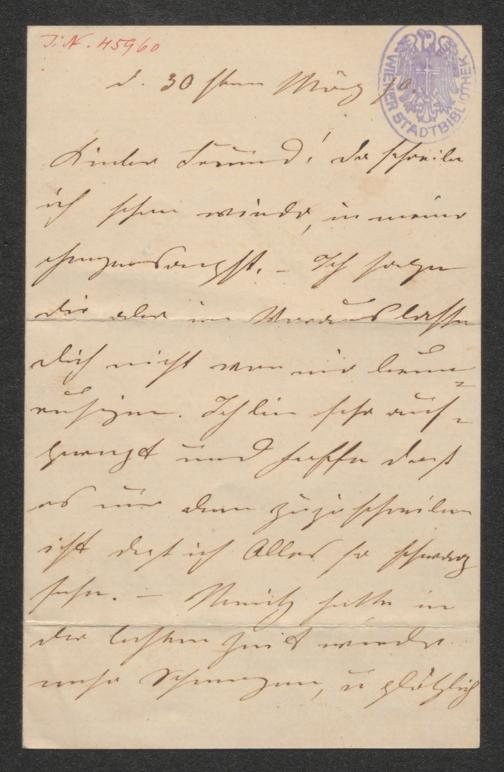 I. N. 45960
WIENER STADTBIBLIOTHEK
d. 30sten März
Lieber Freund! Da schreibe
ich schon wieder, in meiner
Ich sage
dir aber im Voraus lasse
dich nicht von mir beun=
ruhigen. Ich bin sehr auf=
geregt und hoffe daß
es nur dem zuzuschreiben
ist daß ich Alles so schwarz
sehe. – hatte in
der letzten Zeit wieder
mehr Schmerzen, u plötzlich